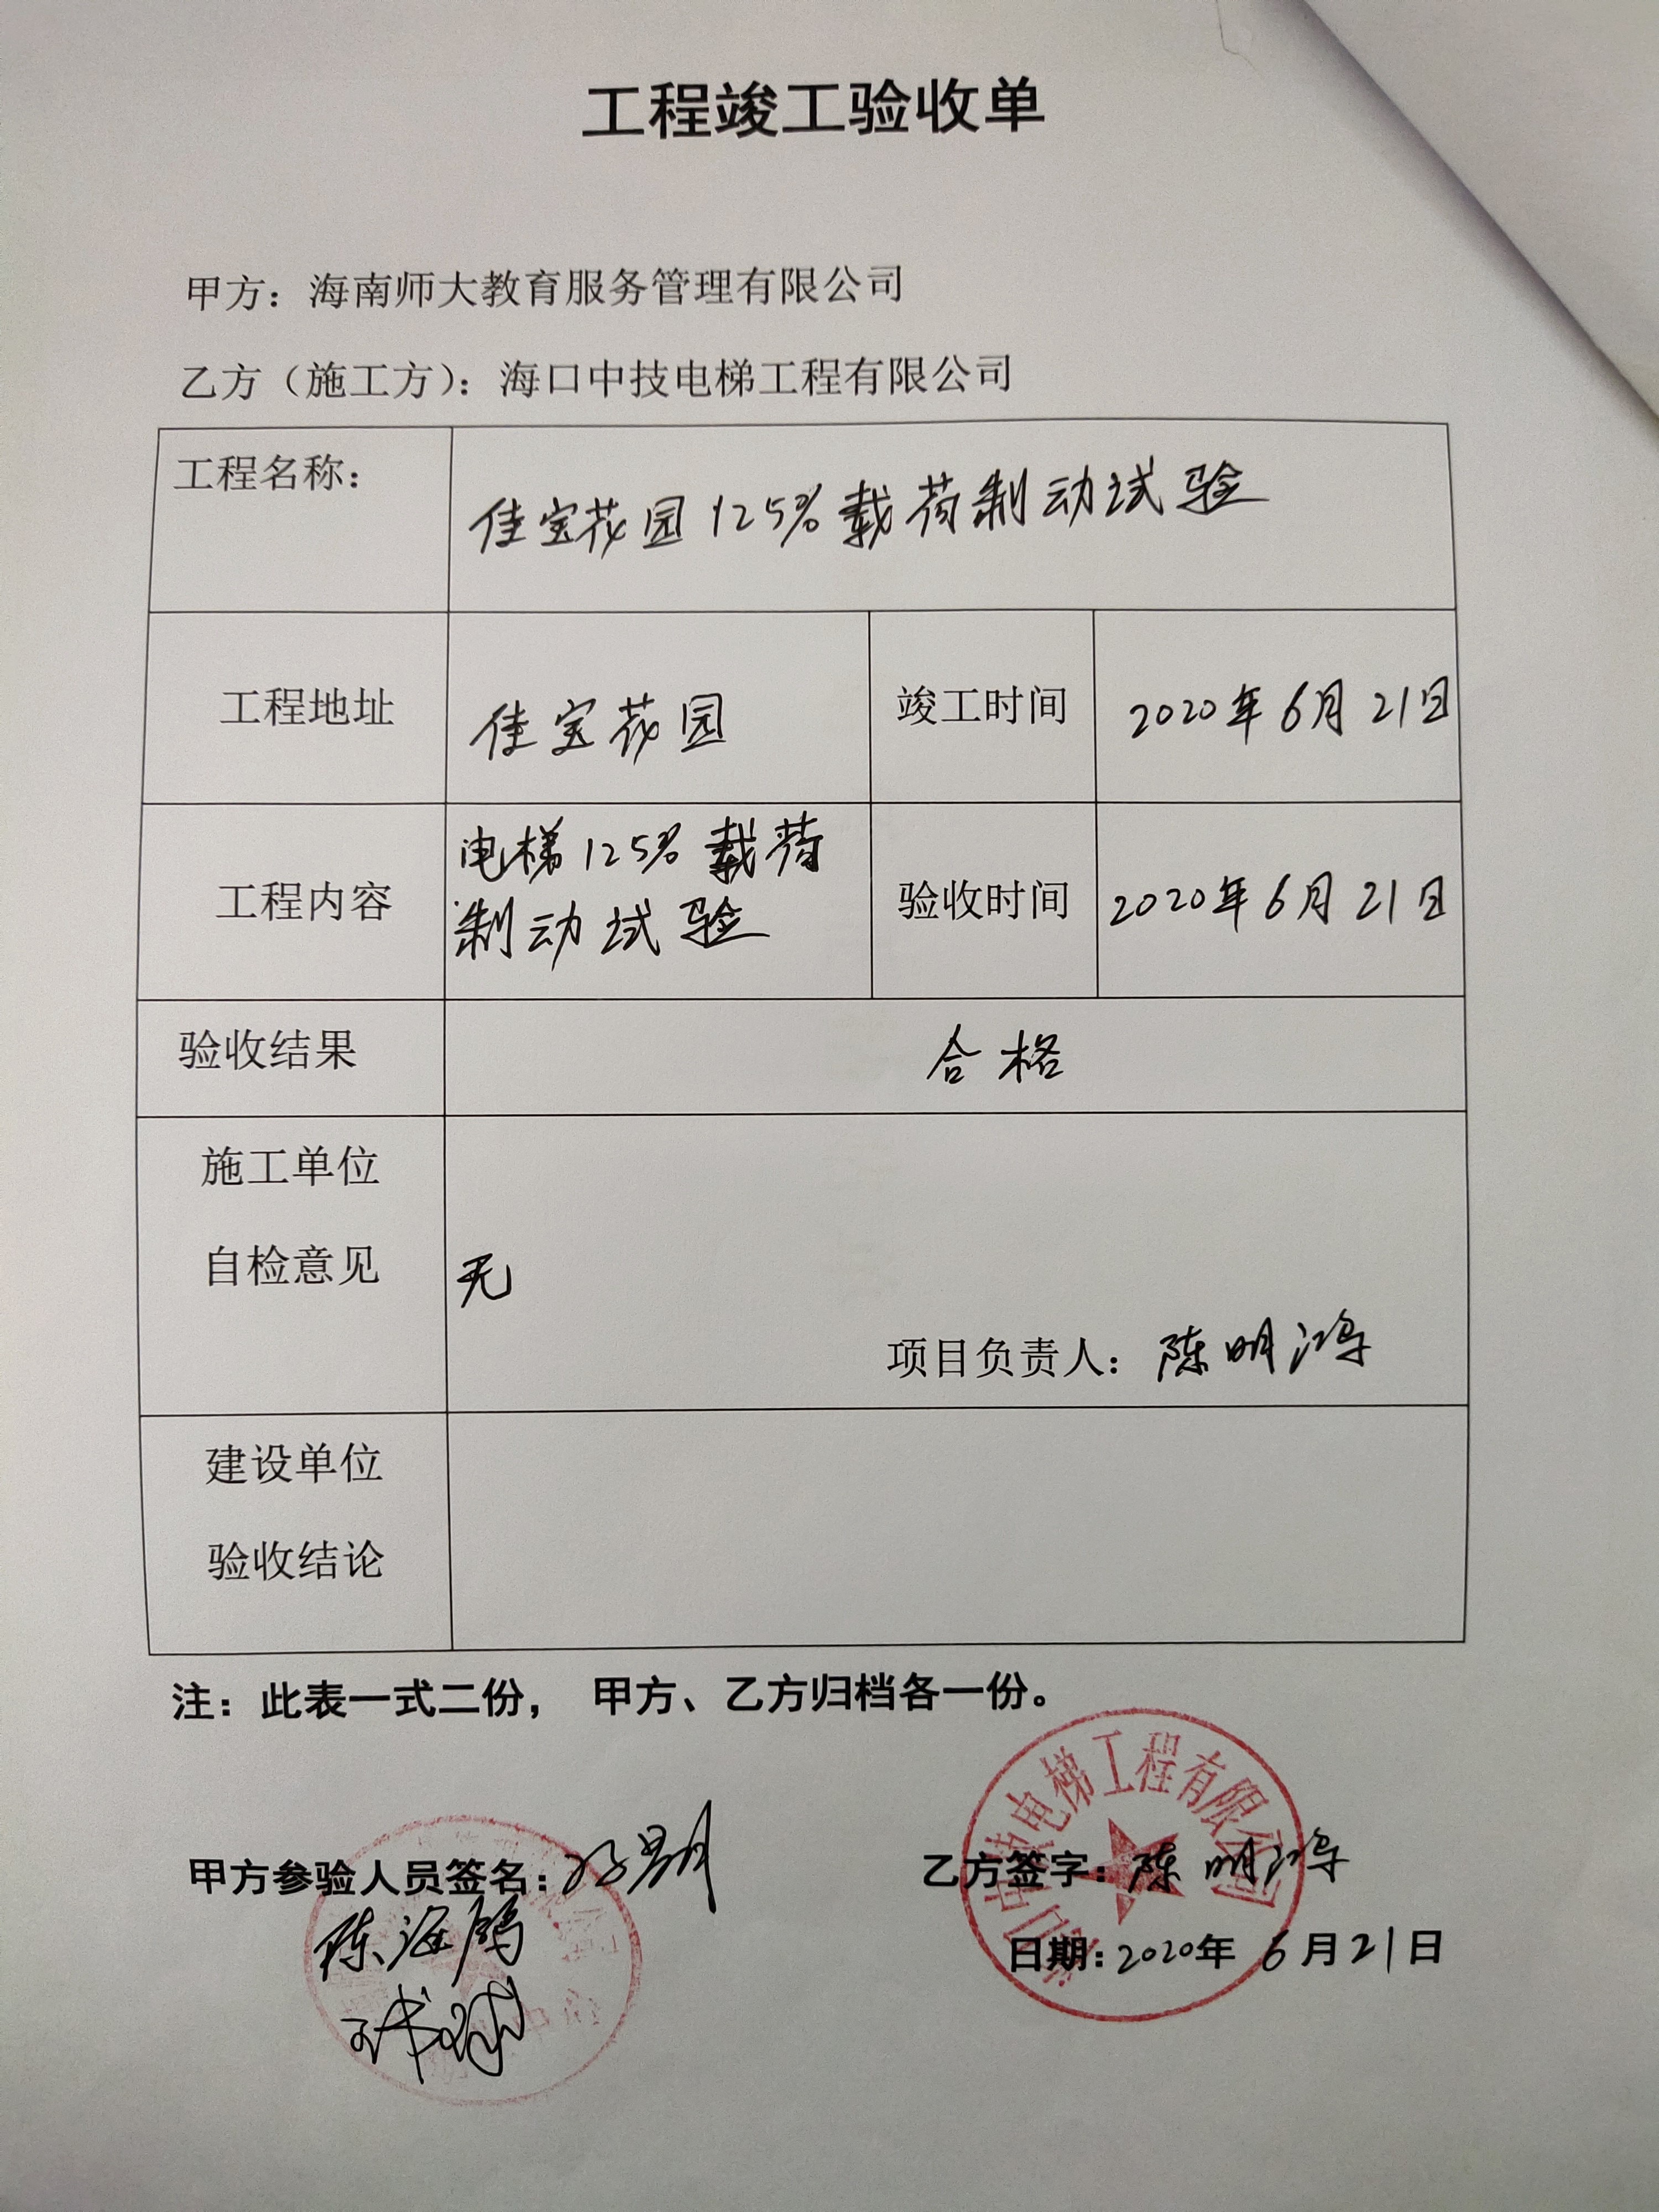 工程竣工验收单
甲方：海南师大教育服务管理有限公司
乙方（施工方）：海口中技电梯工程有限公司
工程名称：
佳宝花园125%载荷制动试验
工程地址
佳宝花园
竣工时间
2020年6月21日
工程内容
电梯125%载荷
制动试验
验收时间
2020年6月21日
验收结果
合格
施工单位
自检意见
无
项目负责人：陈明鸿
建设单位
验收结论
注：此表一式二份， 甲方、乙方归档各一份。
甲方参验人员签名：
陈海鹏
乙方签字：陈明鸿
日期：2020年6月21日
海口中技电梯工程有限公司